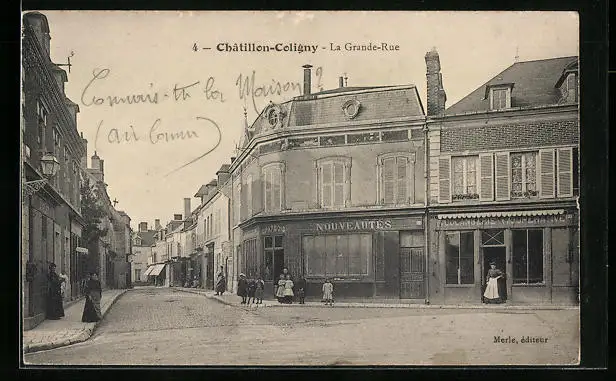 4 — Châtillon-Coligny - La Grande-Rue
Connais-tu la Maison ?
(air connu)
NOUVEAUTÉS
Merle, éditeur